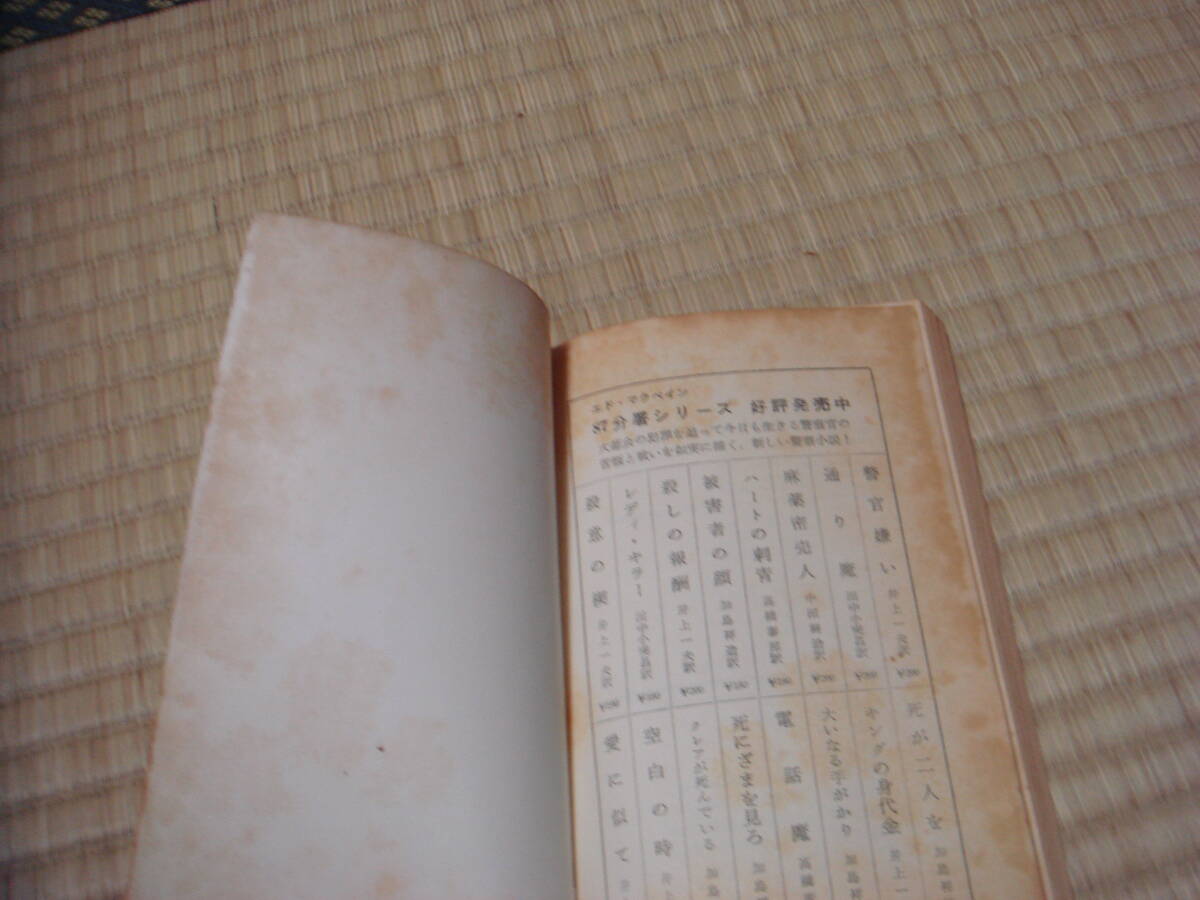 エド・マクベイン
87分署シリーズ 好評発売中
大都会の犯罪を追って今日も生きる警察官の
苦悩と戦いを如実に描く、新しい警察小説！
警官嫌い 井上一夫訳 ¥200
通り魔 田中小実昌訳
麻薬密売人 中田耕治訳
ハートの刺青 高橋泰邦訳
被害者の顔 加島祥造訳
殺しの報酬 井上一夫訳 ¥200
レディ・キラー 田中小実昌訳
殺意の楔 井上一夫訳
死が二人を 加島祥
キングの身代金 井上一
大いなる手がかり 加島祥
電話魔 高橋泰
死にざまを見ろ 加島
クレアが死んでいる 加島
空白の時 井上
愛に似て 井